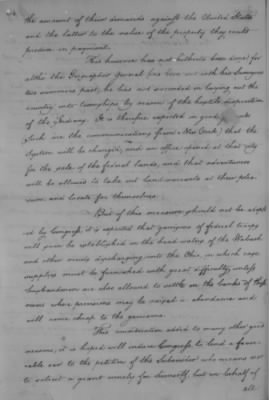 the amount of their demands against the United States
and the latter to the value of the property they could
produce in payment.
This however has not hitherto been done; for
altho the Geographer General has been out with his Surveyors
two summers past, he has not succeeded in laying out the
country into townships by reason of the hostile disposition
of the Indians. It is therefore expected in good
(such are the communications from New York) that the
system will be changed, and an office opened at that city
for the sale of the federal lands, and that adventurers
will be allowed to take out land warrants at their
and locate for themselves.
But if this measure should not be
by Congress it is expected that garrisons of federal troops
will soon be established on the head waters of the Wabash
and other rivers discharging into the Ohio, in which case
supplies must be furnished with great difficulty, unless
husbandmen are also allowed to settle on the banks of
rivers where provisions may be raised in abundance and
will come cheap to the garrisons.
This consideration added to many other good
reasons, it is hoped will induce Congress to lend a favor-
able ear to the petition of the Subscriber who means not
to solicit a grant merely for himself, but in behalf of
all